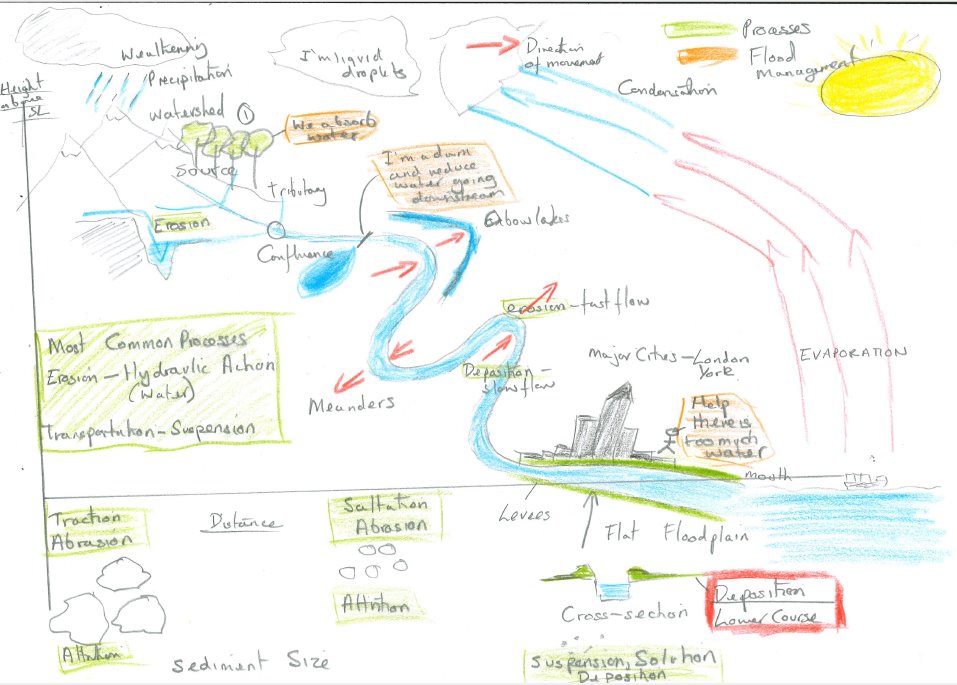 Weathering
Precipitation
Watershed ①
I'm liquid
droplets
Direction
of movement
Processes
Flood
Management
Height
above
SL
Condensation
We absorb
water
Source
tributary
I'm a dam
and reduce
water going
downstream
Oxbow lakes
Erosion
Confluence
erosion - fast flow
Deposition
- slow flow
Meanders
Major Cities - London
York
EVAPORATION
Most Common Processes
Erosion - Hydraulic Action
(Water)
Transportation - Suspension
Help
there is
too much
water
mouth
Levees
Flat Floodplain
Traction
Abrasion
Distance
Saltation
Abrasion
Attrition
Cross-section
Deposition
Lower Course
Attrition
Sediment Size
Suspension, Solution
Deposition